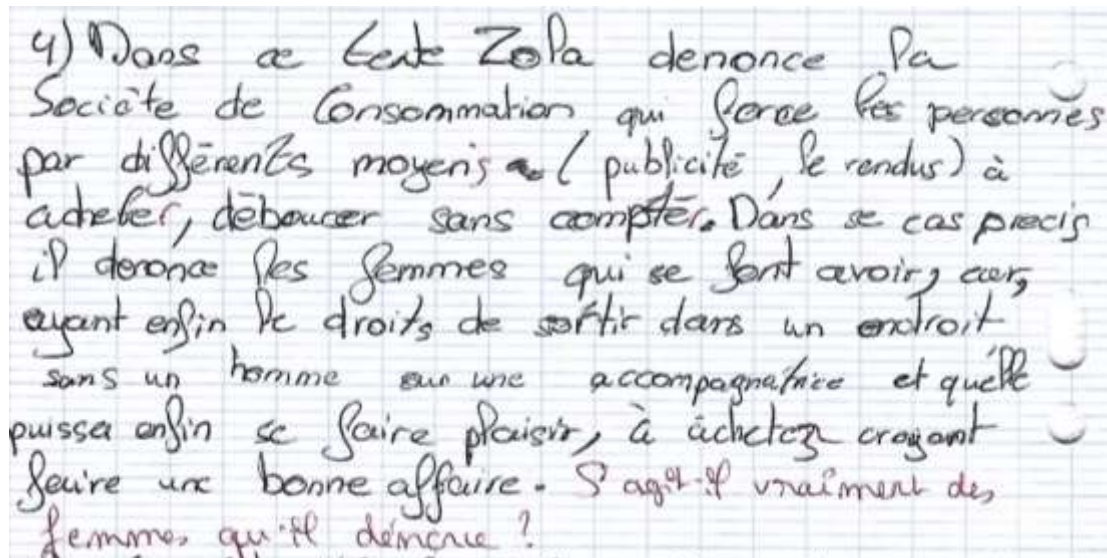 4) Dans ce texte Zola denonce la
Sociète de Consommation qui force les personnes
par différents moyens (publicité, le rendus) à
acheter, débourser sans compter. Dans se cas precis
il denonce les femmes qui se font avoir, car,
ayant enfin le droits de sortir dans un endroit
sans un homme une accompagnatrice et quelle
puisse enfin se faire plaisir, à achetez croyant
faire une bonne affaire. S'agit-il vraiment des
femmes qu'il dénonce ?